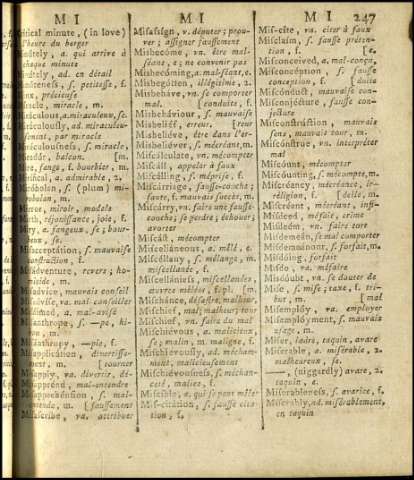 M I
M I
M I 247
itical minute, (in love)
l'heure du berger
inútely, a. qui arrive à
chaque minute
inútely, ad. en détail
inúteness, s. petitesse, f.
inx, précieuse f.
iracle, miracle, m.
iráculous, a. miraculeux, se.
iráculously, ad. miraculeu-
sement, par miracle
iráculousness, s. miracle,
m.
ire, fange, f. bourbier, m.
irífical, a. admirable, 2.
iróbolan, s. (plum) mi-
robolan, m.
irror, miroir, modele
irth, réjouissance, joie, f.
iry, a. fangeux, se; bour-
beux, se
isacceptátion, s. mauvaise
construction, f.
isadvénture, revers; ho-
micide, m.
isadvíce, mauvais conseil
isadvíse, va. mal conseiller
isadvised, a. mal-avisé
isánthropy, —pie, f.
isapplicátion, divertisse-
ment, m. [tourner
isapplý, va. divertir, dé-
isapprehénd, mal-entendre
isapprehénsion, s. mal-
entendu, m. [faussement
isascríbe, va. attribuer
Misassígn, v. députer; prou-
ver; assigner faussement
Misbecóme, v. être mal-
séant, e; ne convenir pas
Misbecóming, a. mal-séant, e.
Misbegótten, illégitime, 2.
Misbeháve, vn. se comporter
mal. [conduite, f.
Misbeháviour, mauvaise
Misbelíef, erreur. [reur
Misbelíeve, être dans l'er-
Misbelíever, s. mécréant, m.
Miscálculate, vn. mécompter
Miscáll, appeler à faux
Miscálling, s. méprise, f.
Miscárriage, fausse-couche;
faute, f. mauvais succès, m.
Miscárry, vn. faire une fausse
couche; se perdre; échouer,
avorter
Miscást, mécompter
Miscelláneous, a. mêlé, e.
Míscellany, s. mélange, m.
miscellanée, f.
Miscéllanists, miscellanées,
œuvres mêlées, f. pl. [m.
Mischánce, désastre, malheur,
Míschief, mal; malheur; tour
Míschief, vn. faire du mal
Míschievous, a. malicieux,
se; malin, m. maligne, f.
Míschievously, ad. méchan-
ment, malicieusement
Míschievousness, s. méchan-
ceté, malice, f.
Míscible, a. qui se peut mêler
Mis-citátion, s. fausse cita-
tion, f.
Mis-cíte, va. citer à faux
Miscláim, s. fausse préten-
tion, f. [e.
Misconcéived, a. mal-conçu,
Misconcéption, s. fausse
conception, f. [duite
Miscónduct, mauvaise con-
Misconjécture, fausse con-
jecture
Misconstrúction, mauvais
sens, mauvais tour, m.
Miscónstrue, vn. interpréter
mal
Miscóunt, mécompter
Miscóunting, s. mécompte, m.
Míscreancy, mécréance, ir-
réligion, f. [delle, 2.
Míscreant, mécréant, infi-
Misdéed, méfait, crime
Misdéem, va. faire tort
Misdeméan, se mal comporter
Misdeméanour, s. forfait, m.
Misdóing, forfait, m.
Misdó, va. méfaire
Misdóubt, va. se douter de
Mise, s. mise; taxe, f. tri-
but, m. [mal
Misemplóy, va. employer
Misemplóyment, s. mauvais
usage, m.
Míser, ladre, taquin, avare
Míserable, a. misérable, 2.
malheureux, se.
——, (niggardly) avare, 2.
taquin, a.
Míserableness, s. avarice, f.
Míserably, ad. misérablement,
en taquin